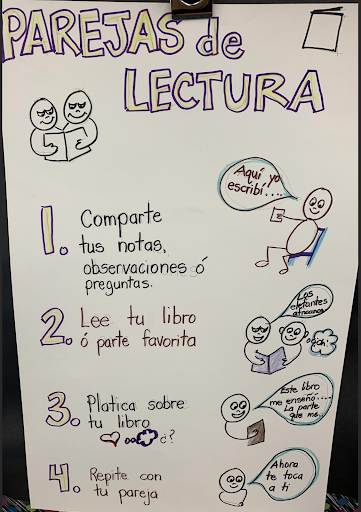 PAREJAS de
LECTURA
Aquí yo
escribí....
1. Comparte
tus notas,
observaciones ó
preguntas.
2. Lee tu libro
ó parte favorita
Los
elefantes
africanos
3. Platica sobre
tu libro
¿?
Este libro
me enseñó....
La parte
que me..
4. Repite con
tu pareja
Ahora
te toca
a ti